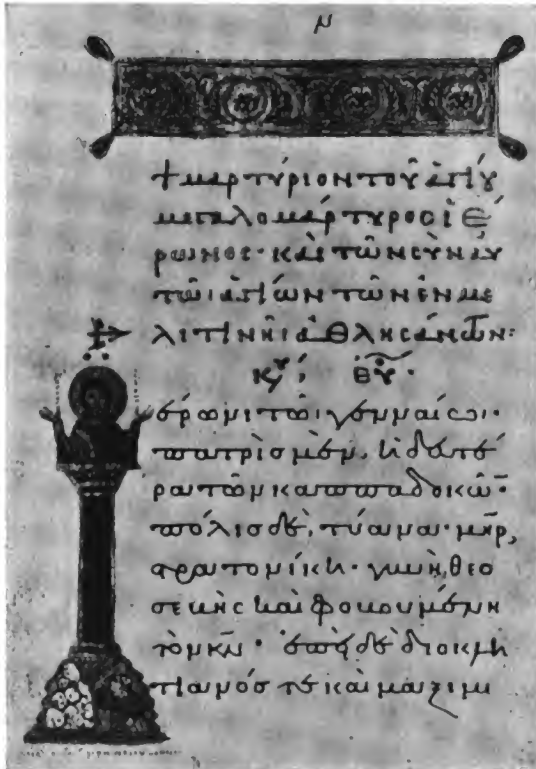 μ
† μαρτύριον τοῦ ἁγίου
μεγαλομάρτυρος ἱέ
ρωνος· καὶ τῶν σὺν αὐ
τῶι ἁγίων τῶν ἐν με
λιτινῆι ἀθλησάντων:
κυ̅ ευ̅·
έρωνι τῶι γενναίωι·
πατρὶς μὲν, ἡ δευτέ
ρα τῶν καππαδοκῶν·
πόλις δὲ, τύανα· μηρ,
στρατονίκη· γυνὴ θεο
σεβὴς καὶ φοβουμένη
τὸν κν̅· ἐπεὶ δὲ διοκλη
τιανός τε καὶ μαξιμι